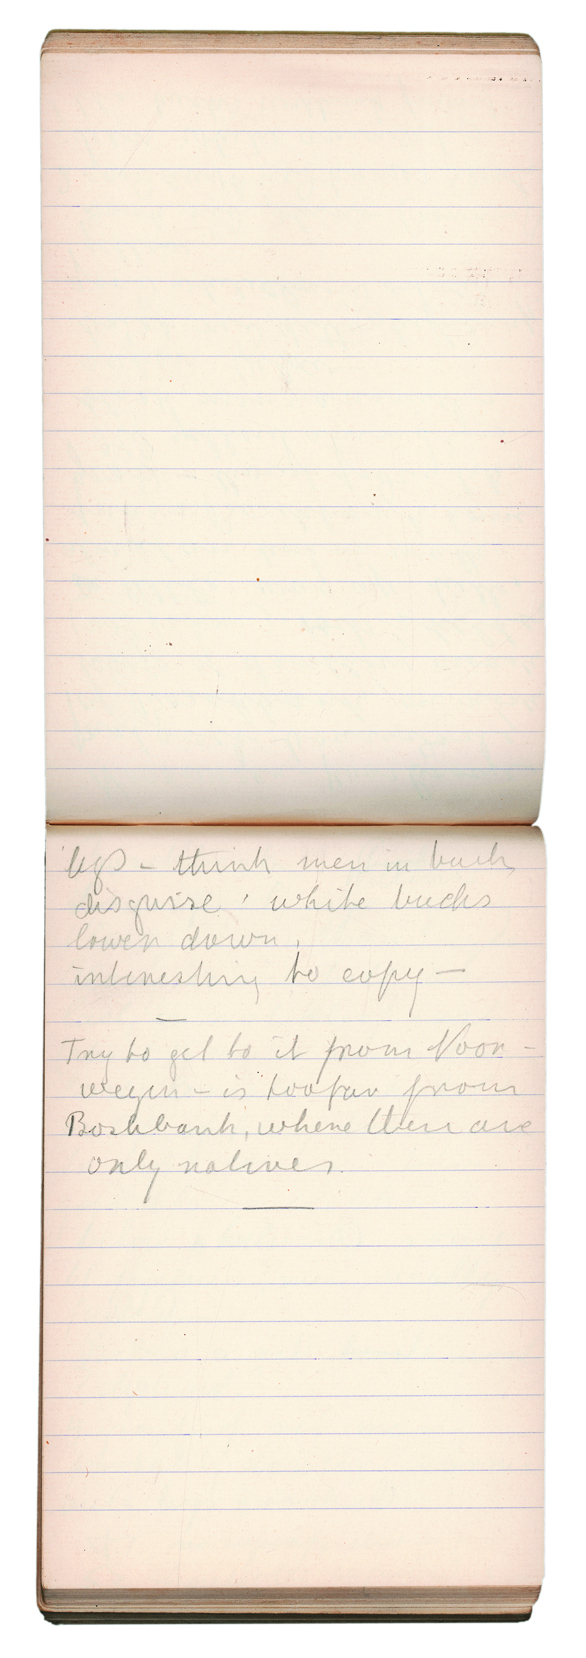 legs – think men in buck
disguise, white bucks
lower down,
interesting to copy –
Try to get to it from Noor-
wegen – is too far from
Boshbank, where there are
only natives.